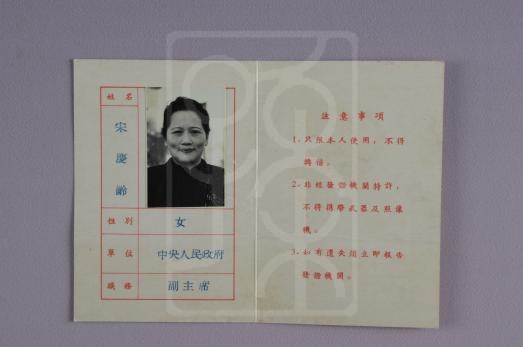 姓名
宋慶齡
性別
女
單位
中央人民政府
職務
副主席
注意事項
1、只限本人使用，不得
轉借。
2、非經發證機關特許，
不得携帶武器及照像
機。
3、如有遺失須立即報告
發證機關。